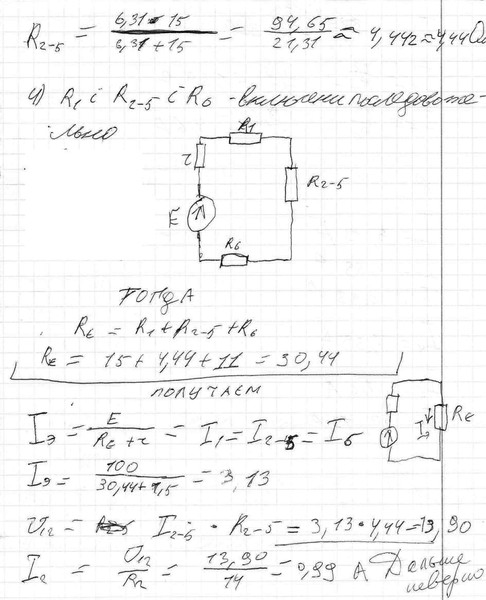 R2-5 = 6,31 · 15 / 6,31 + 15 = 94,65 / 21,31 ≈ 4,442 ≈ 4,44 Ом
4) R1 и R2-5 и R6 - включены последовате-
льно
R1
r
R2-5
E
R6
ТОГДА
RE = R1 + R2-5 + R6
RE = 15 + 4,44 + 11 = 30,44
ПОЛУЧАЕМ
Iэ = E / RE + r = I1 = I2-5 = I6
Iэ RE
Iэ = 100 / 30,44 + 1,5 = 3,13
U12 = I2-5 · R2-5 = 3,13 · 4,44 = 13,90
I2 = U12 / R2 = 13,90 / 14 = 0,99 A Дальше
неверно